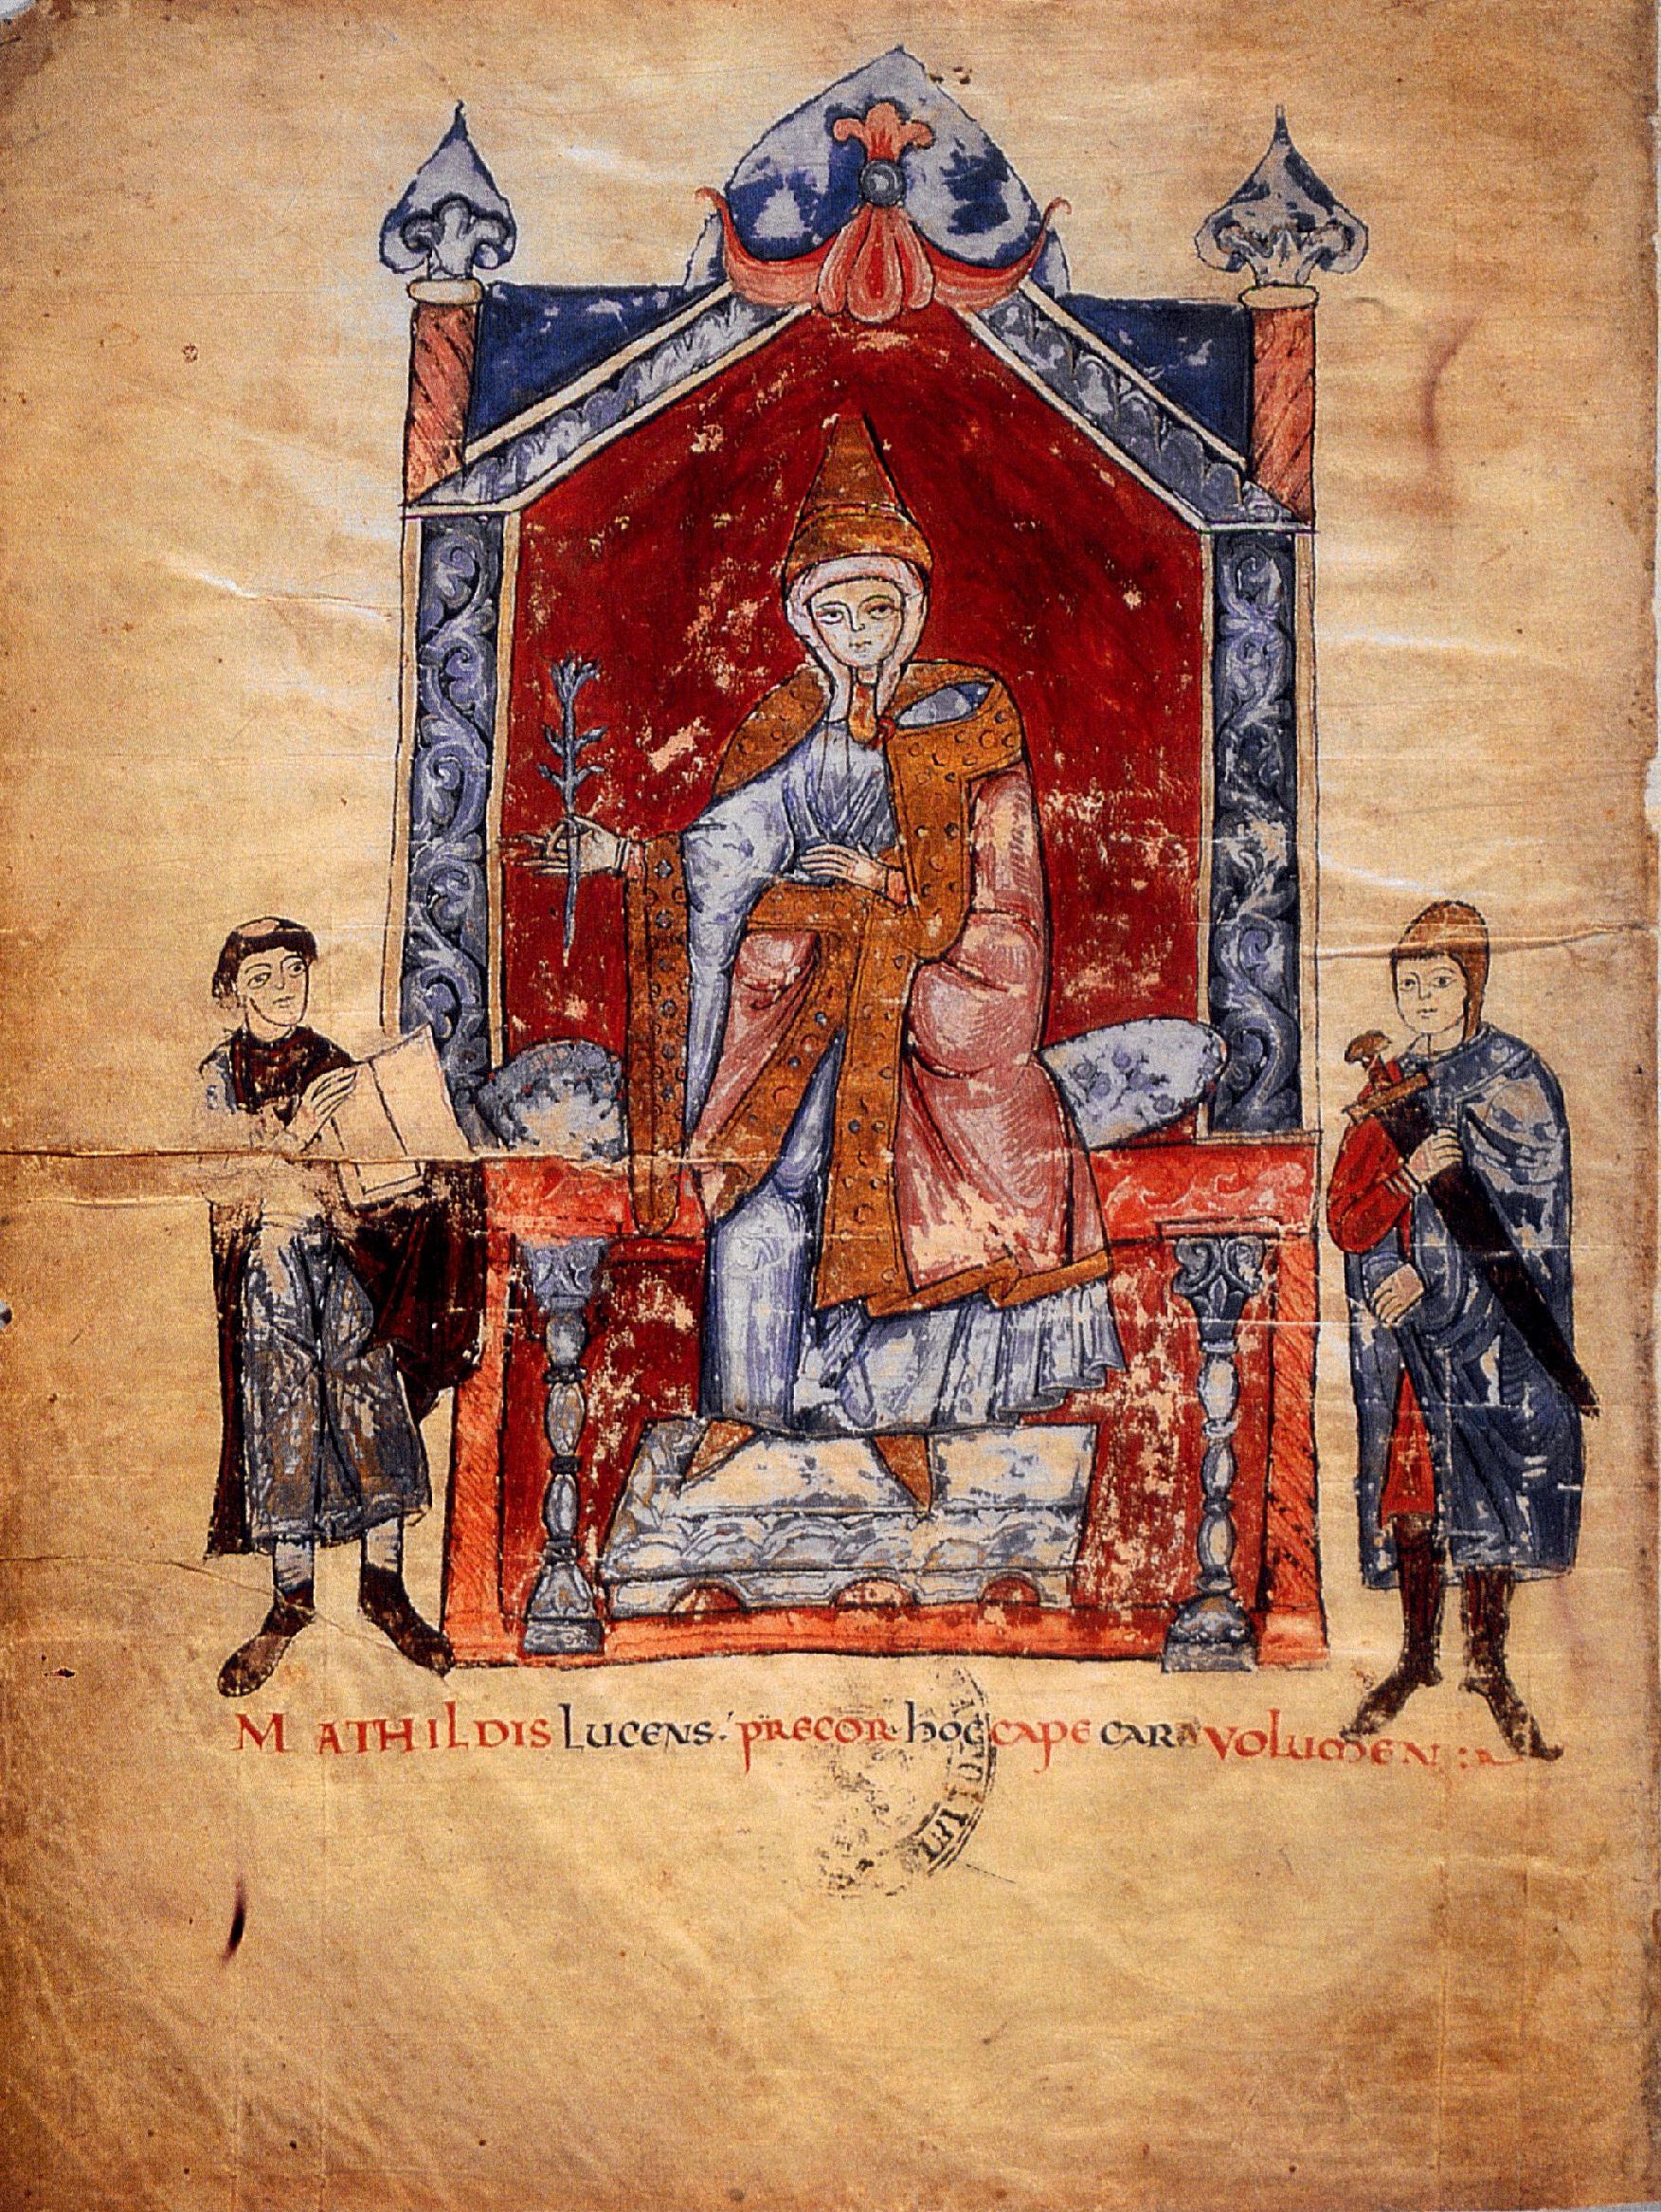 MATHILDIS LUCENS. PRECOR HOC CAPE CARA VOLUMEN